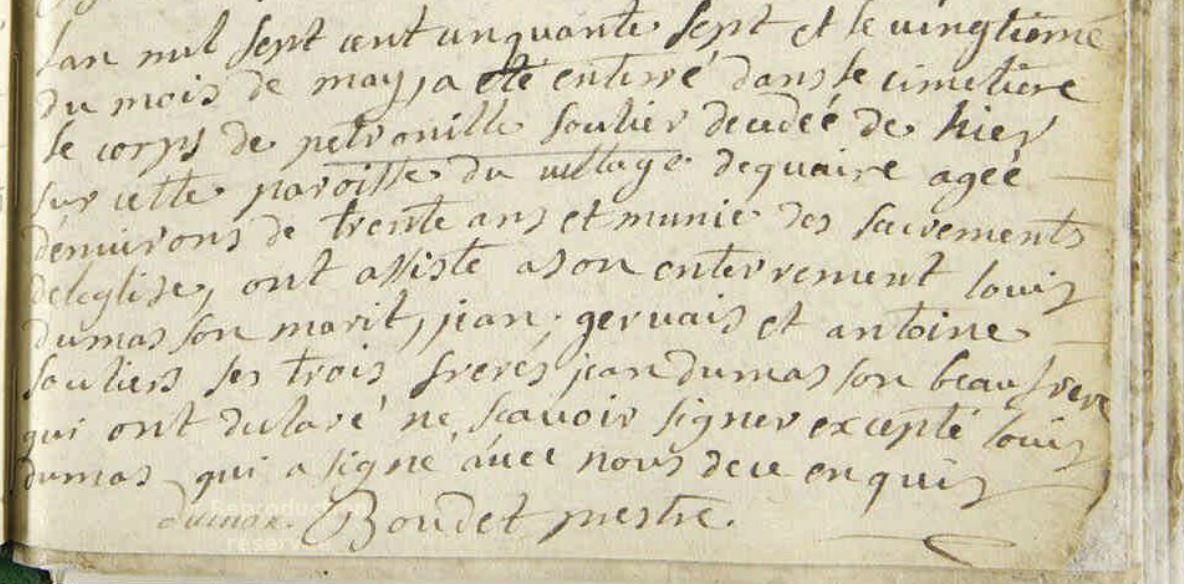 lan mil sept cent cinquante sept et le vingtieme
du mois de may, a eté enterré dans le cimetiere
le corps de petronille soulier decedeé de hier
sur cette paroisse du village dequaire ageé
denvirons de trente ans et munie des sacrements
deleglise, ont assisté a son enterrement louis
dumas son marit, jean, gervais et antoine
souliers ses trois freres jean dumas son beau frere
qui ont declaré ne scavoir signer excepté louis
dumas qui a signé avec nous de ce enquis
dumas. Boudet prestre.